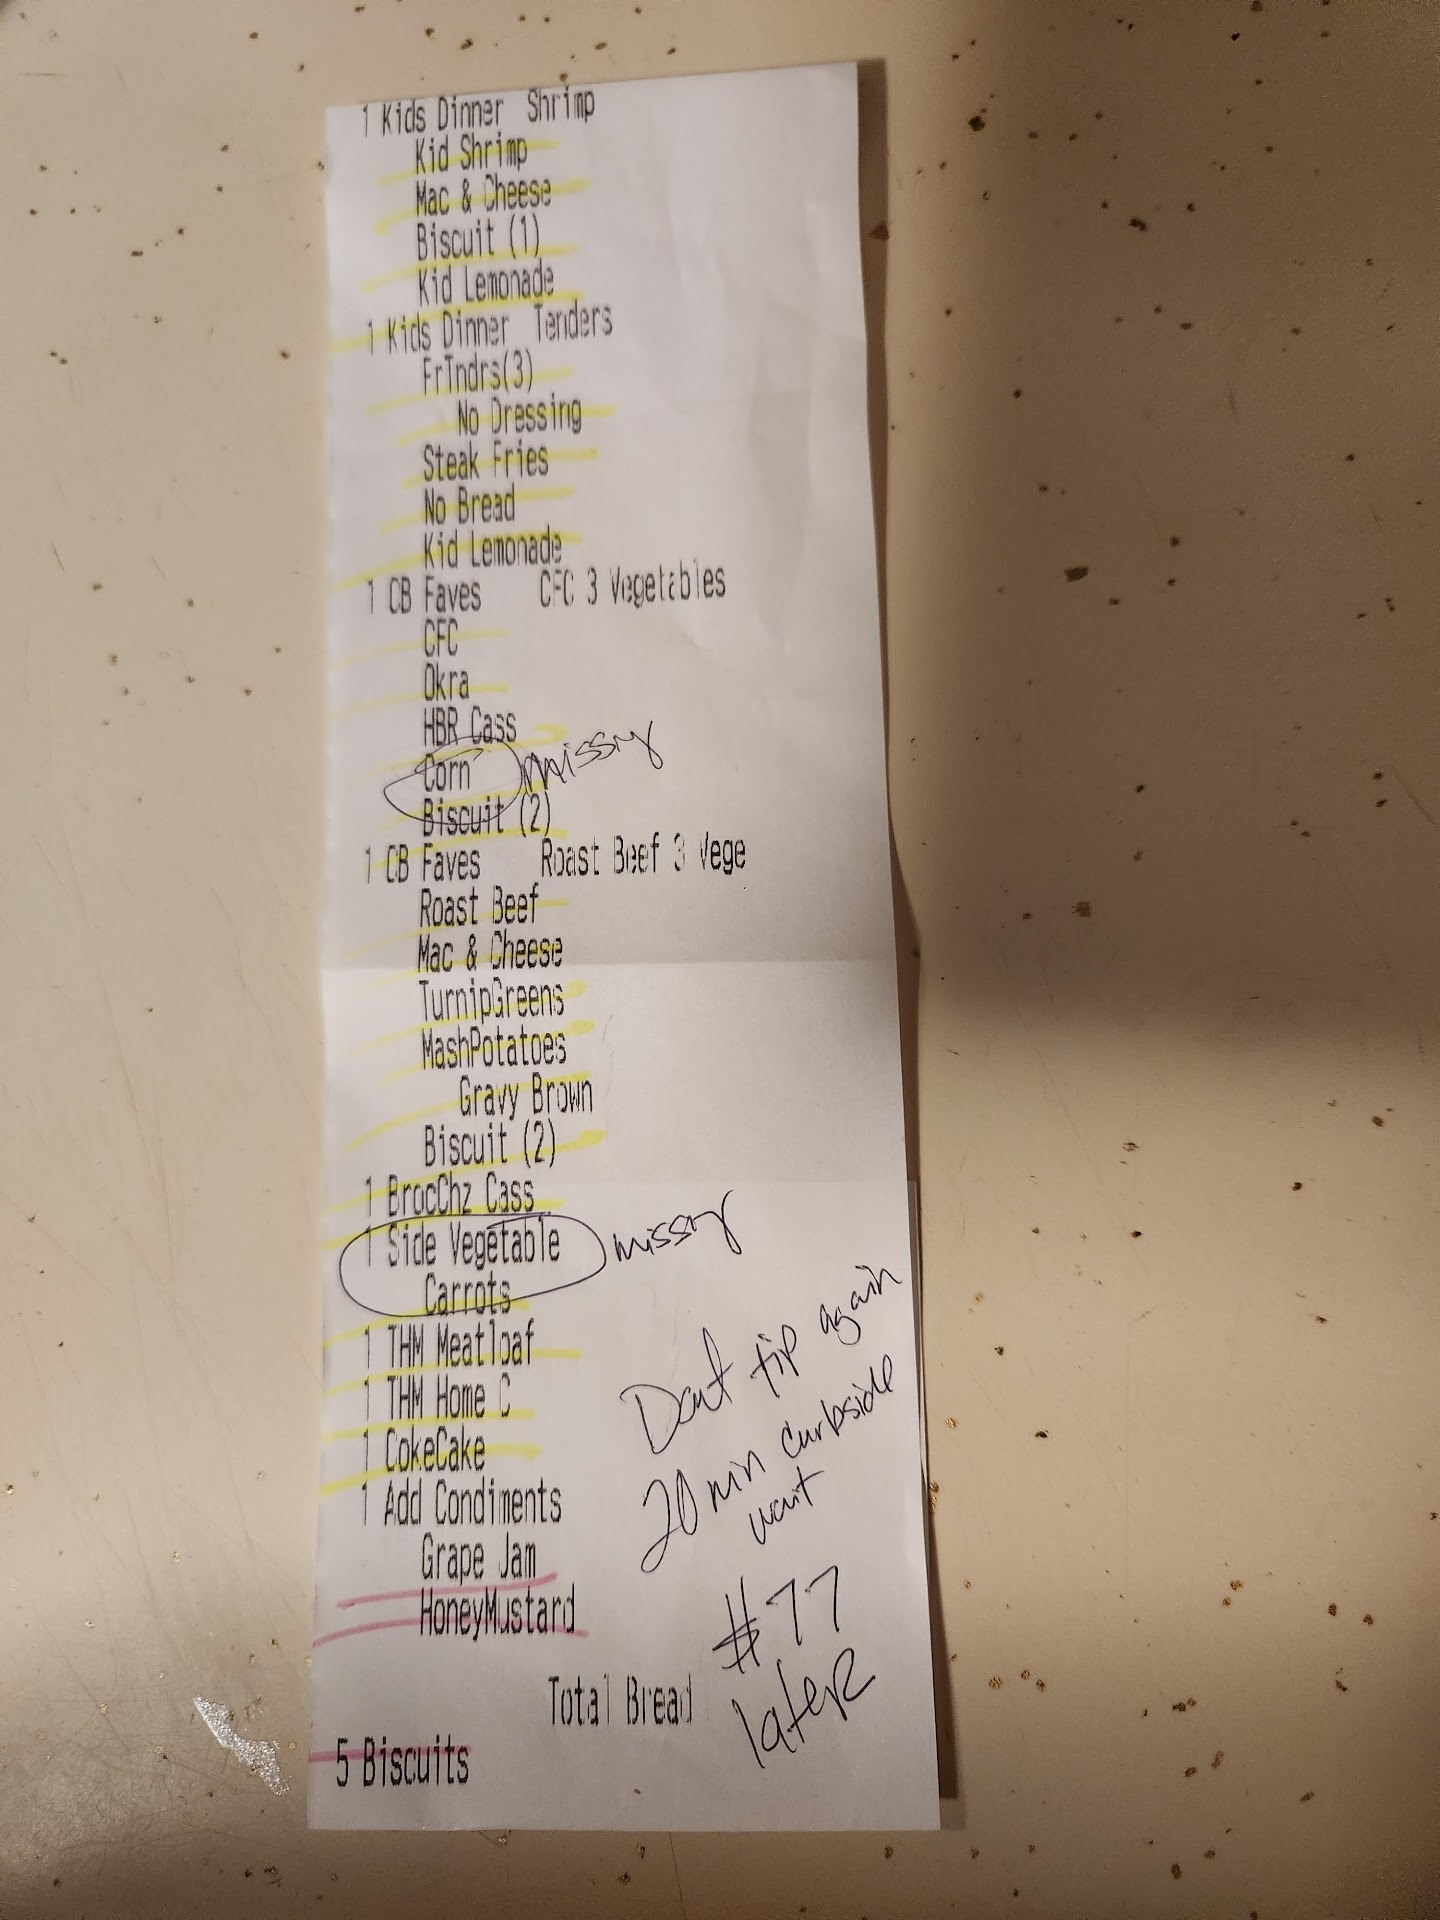 1 Kids Dinner Shrimp
Kid Shrimp
Mac & Cheese
Biscuit (1)
Kid Lemonade
1 Kids Dinner Tenders
FrTndrs(3)
No Dressing
Steak Fries
No Bread
Kid Lemonade
1 CB Faves CFC 3 Vegetables
CFC
Okra
HBR Cass
Corn missing
Biscuit (2)
1 CB Faves Roast Beef 3 Vege
Roast Beef
Mac & Cheese
TurnipGreens
MashPotatoes
Gravy Brown
Biscuit (2)
1 BrocChz Cass
1 Side Vegetable missing
Carrots
1 THM Meatloaf
1 THM Home C
1 CokeCake
1 Add Condiments
Grape Jam
HoneyMustard
Dont tip again
20 min curbside
wait
#77
later
Total Bread
5 Biscuits